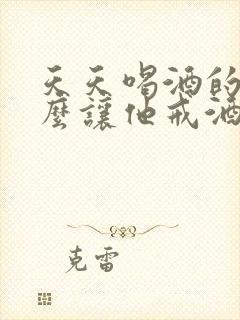 天天喝酒的
麼讓他戒酒
克雷